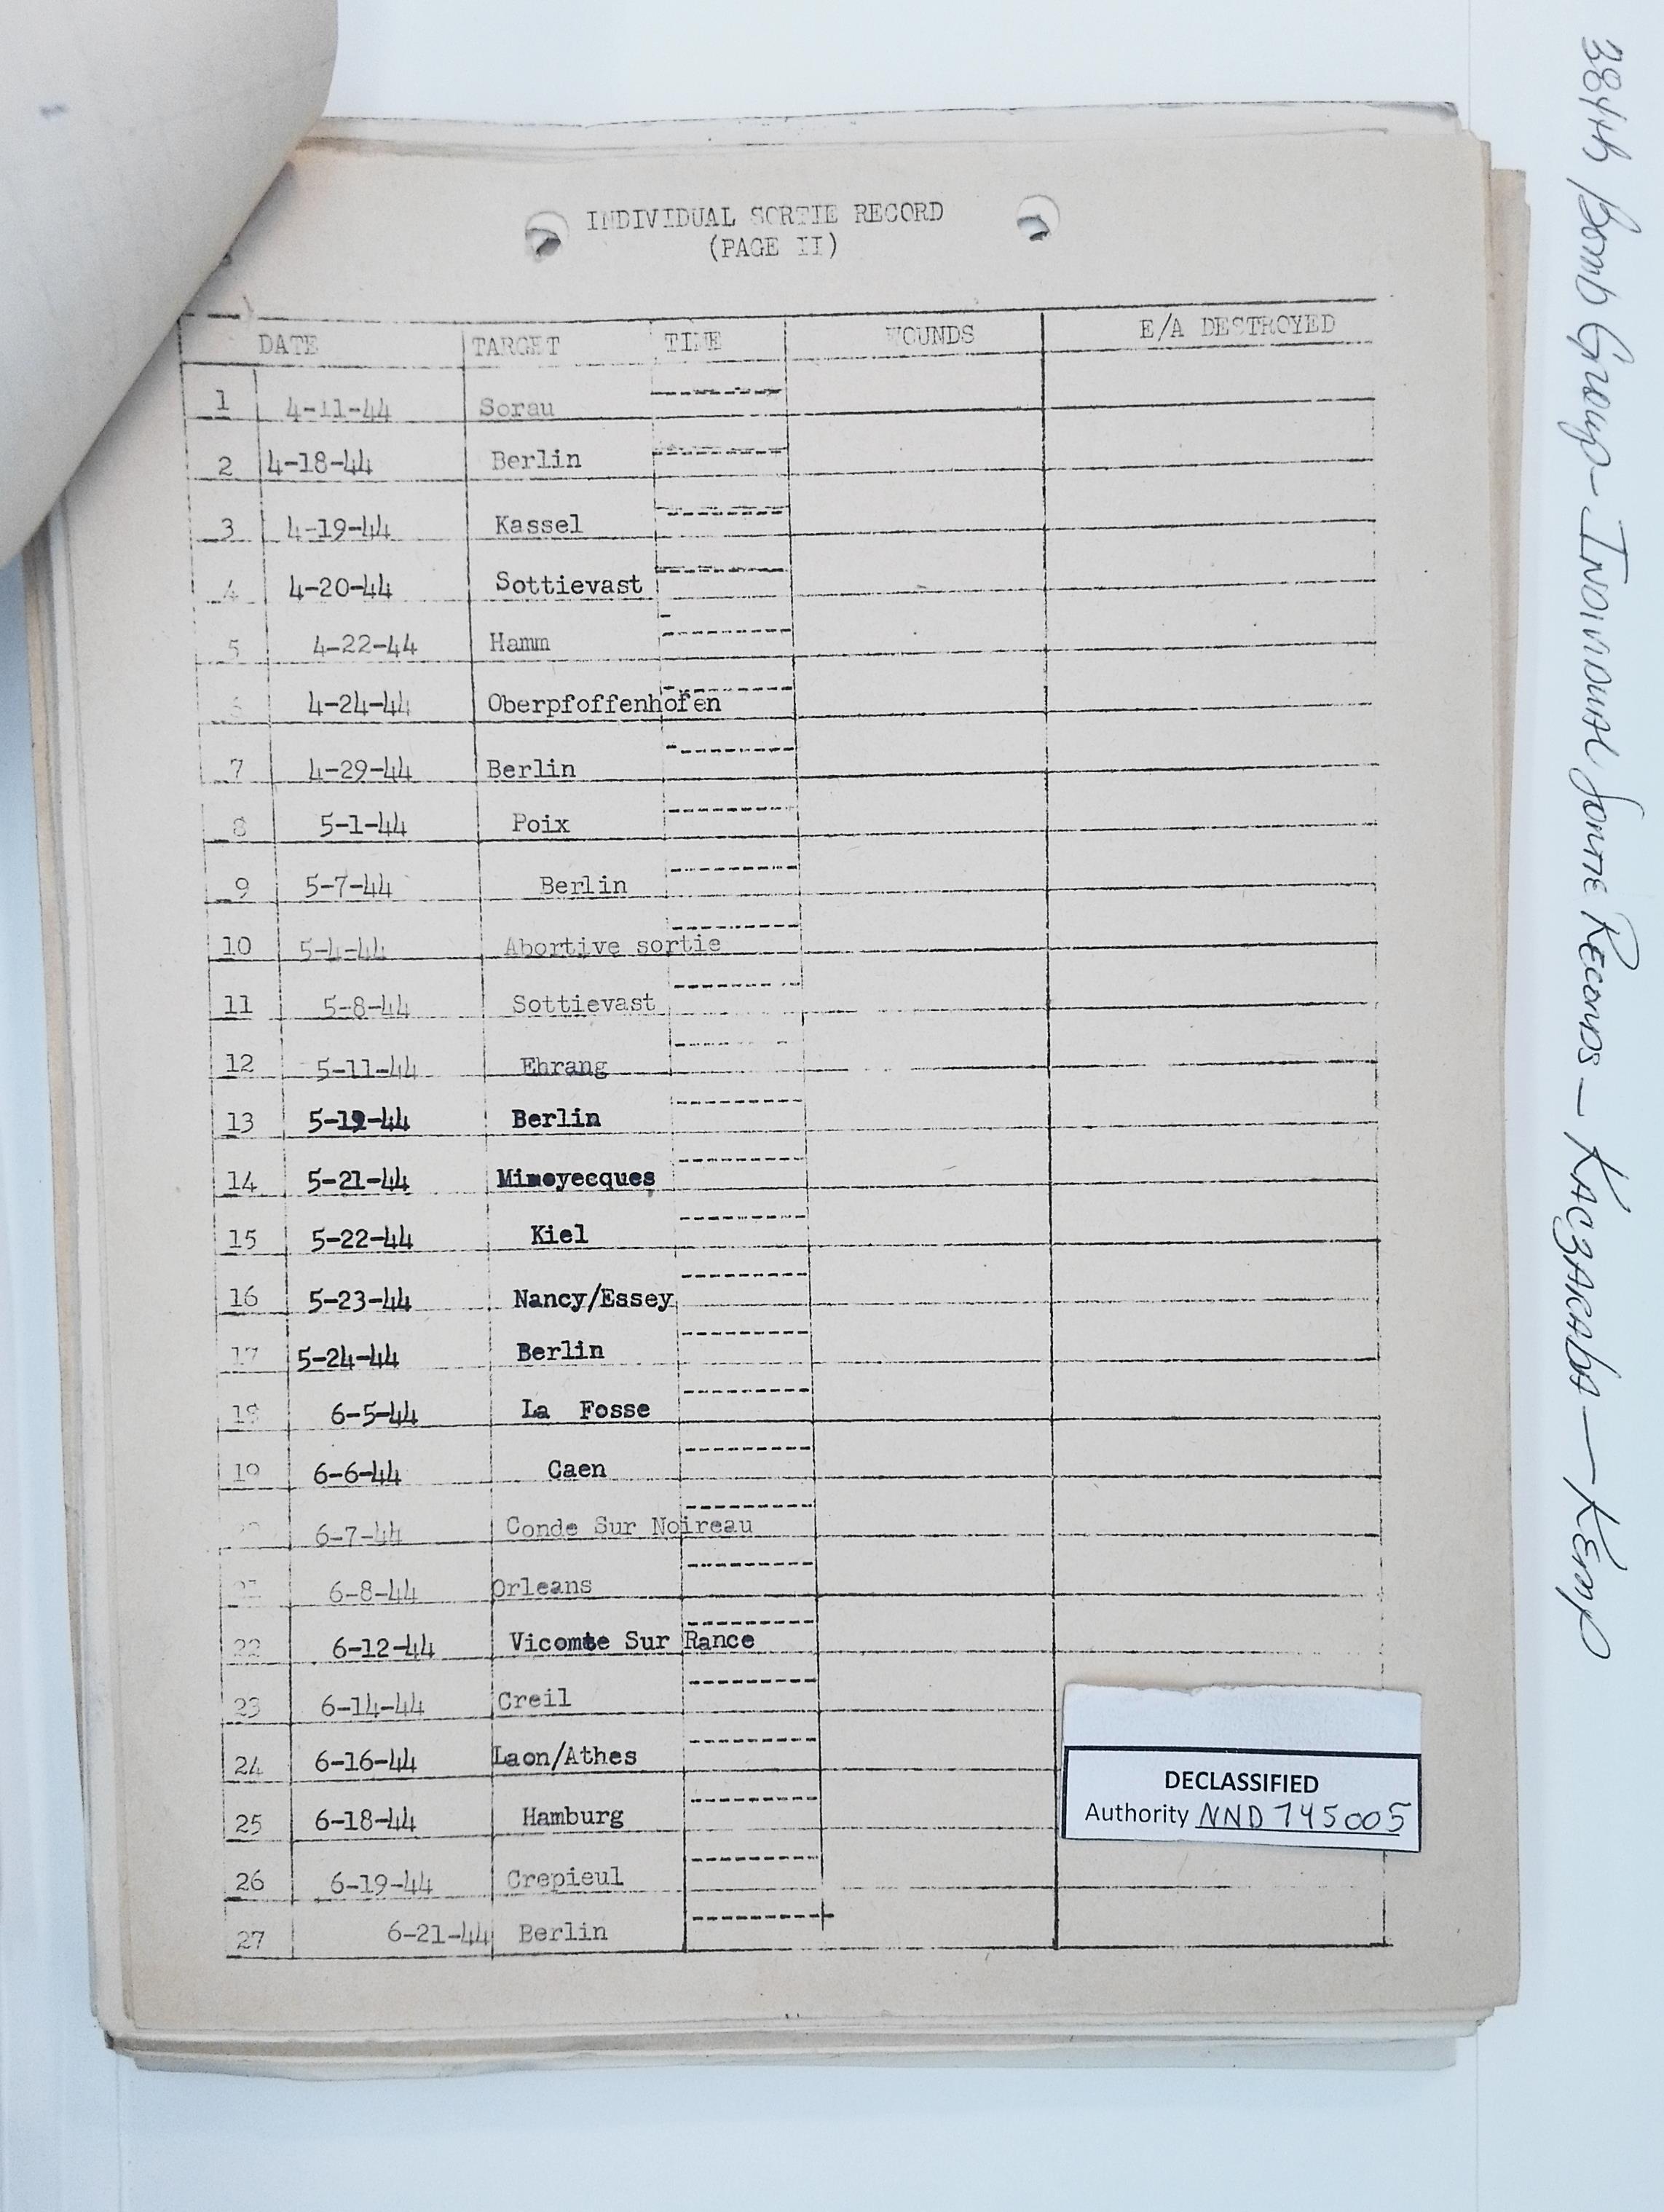 INDIVIDUAL SORTIE RECORD
(PAGE II)
DATE TARGET TIME WOUNDS E/A DESTROYED
1 4-11-44 Sorau
2 4-18-44 Berlin
3 4-19-44 Kassel
4 4-20-44 Sottievast
5 4-22-44 Hamm
6 4-24-44 Oberpfoffenhofen
7 4-29-44 Berlin
8 5-1-44 Poix
9 5-7-44 Berlin
10 5-4-44 Abortive sortie
11 5-8-44 Sottievast
12 5-11-44 Ehrang
13 5-19-44 Berlin
14 5-21-44 Mimoyecques
15 5-22-44 Kiel
16 5-23-44 Nancy/Essey
17 5-24-44 Berlin
18 6-5-44 La Fosse
19 6-6-44 Caen
20 6-7-44 Conde Sur Noireau
21 6-8-44 Orleans
22 6-12-44 Vicomte Sur Rance
23 6-14-44 Creil
24 6-16-44 Laon/Athes
25 6-18-44 Hamburg
26 6-19-44 Crepieul
27 6-21-44 Berlin
DECLASSIFIED
Authority NND 745005
384th Bomb Group - Individual Sortie Records - Kaczaraba - Kemp